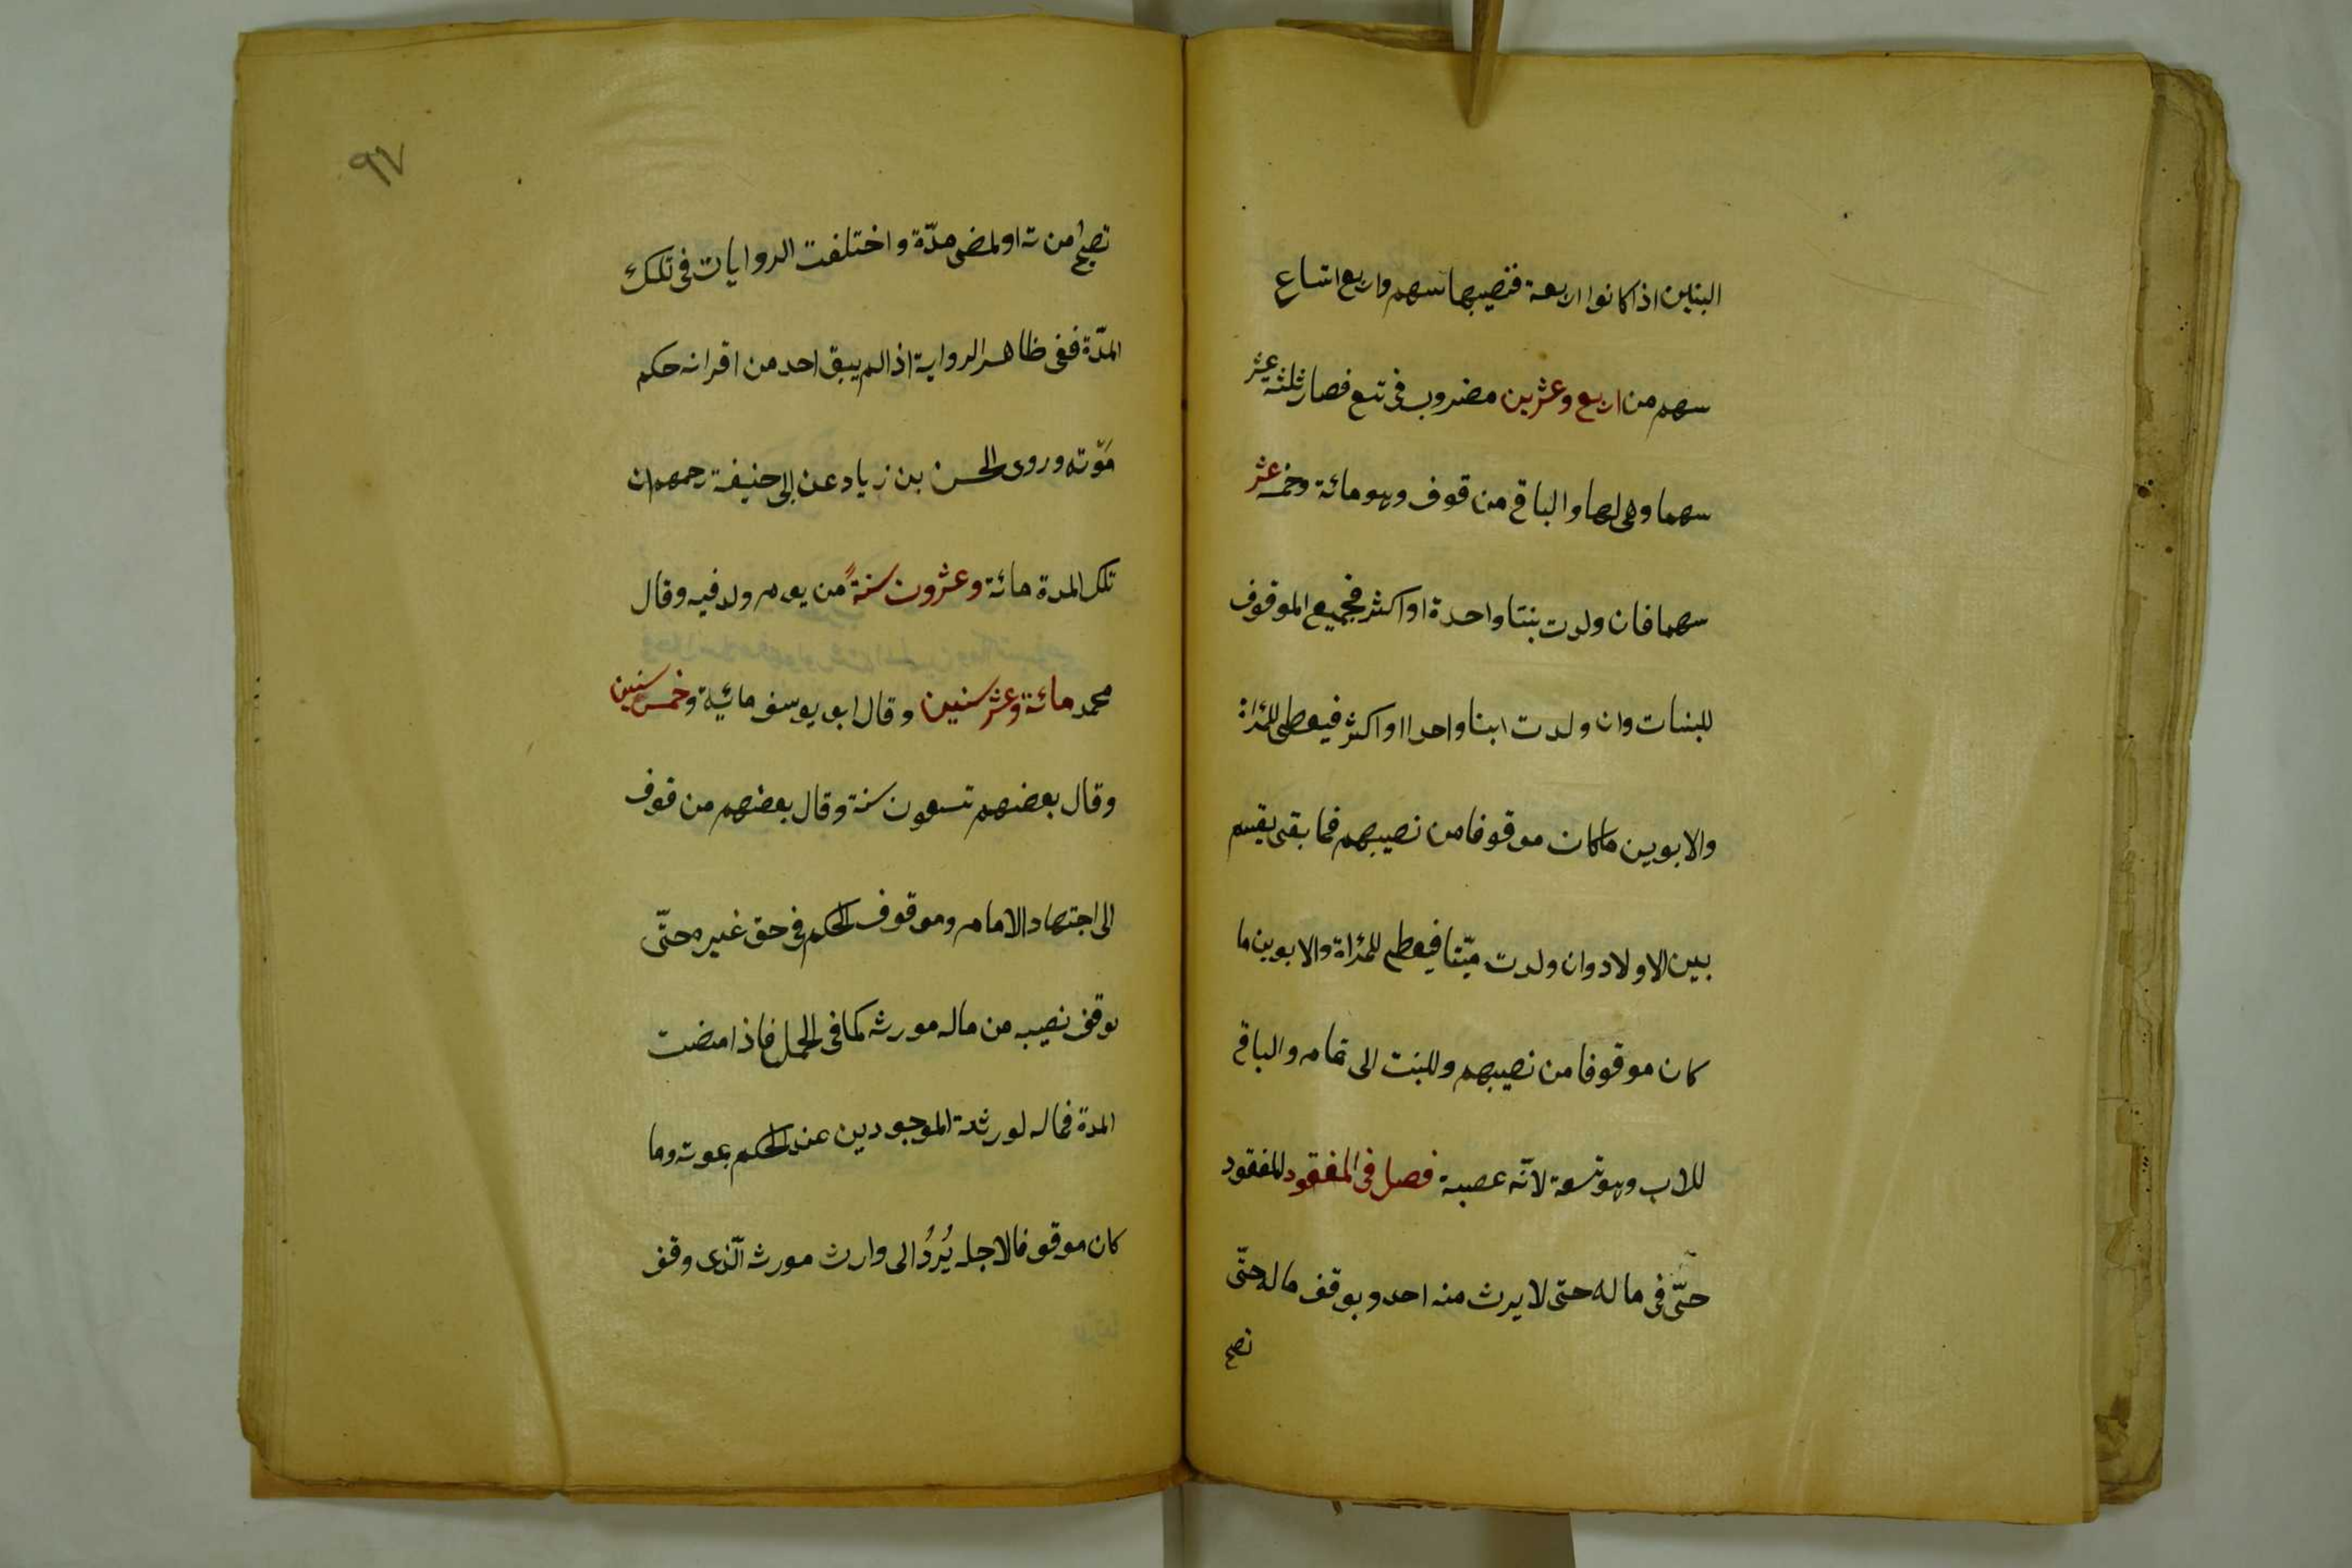 البنين اذا كانوا اربعة فنصيبها سهم واربع اتساع
سهم من اربع وعشرين مضروب فى تسع فصار ثلثة عشر
سهما وهى لها والباقى من قوف وهو مائة وخمسة عشر
سهما فان ولدت بنتا واحدة او اكثر فجميع الموقوف
للبنات وان ولدت ابنا واحدا او اكثر فيعطى للمرأة
والابوين ما كان موقوفا من نصيبهم فما بقى يقسم
بين الاولاد وان ولدت ميّتا فيعطى للمرأة والابوين ما
كان موقوفا من نصيبهم وللبنت الى تمامه والباقى
للاب وهو تسعة لانّه عصبة فصل فى المفقود المفقود
حىّ فى ماله حتى لا يرث منه احد ويوقف ماله حتّى
تصح
٩٧
تصح من ته او لمضى مدّة واختلفت الروايات فى تلك
المدّة ففى ظاهر الرواية اذا لم يبق احد من اقرانه حكم
موته وروى الحسن بن زياد عن ابى حنيفة رحمهم ان
تلك المدة مائة وعشرون سنةً من يوم ولد فيه وقال
محمد مائة وعشر سنين وقال ابو يوسف مائية وخمس سنين
وقال بعضهم تسعون سنة وقال بعضهم من قوف
الى اجتهاد الامام وموقوف الحكم فى حق غيره حتّى
يوقف نصيبه من ماله مورثه كما فى الحمل فاذا مضت
المدة فماله لورثته الموجودين عند الحكم بموته وما
كان موقوفا لاجله يُردُ الى وارث مورثه الّذى وقف